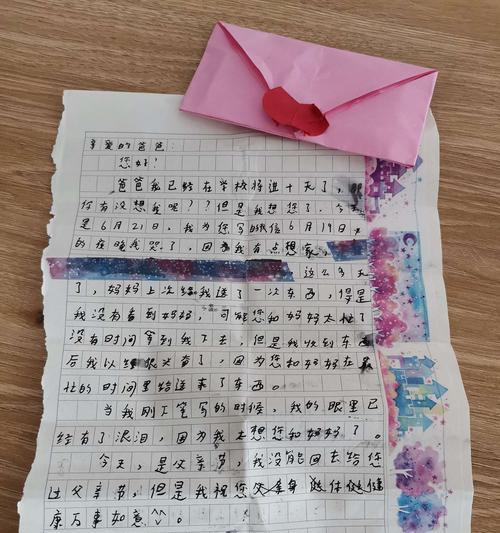 亲爱的爸爸:
您好!
爸爸我已经在学校将进十天了,
你有没想我呢??但是我想您了。今天
是6月21日,我为您写的信6月19日
的在晚我哭了,因为我有点想家,
这么多天
了,妈妈上次给我送了一次东西,但是
我没有看到妈妈,可能您和妈妈太忙了
没有时间拿到我下去,但是我收到东西
后我以经很欠喜了,因为您和妈妈在
忙的时间里给送来了东西。
当我刚丁笔写的时候,我的眼里已
经有了泪泪,因为我太想您和妈妈了。
今天,是父亲节,我没能回去给您
过父亲节,但是我祝您父亲身体健
康万事如意^^。